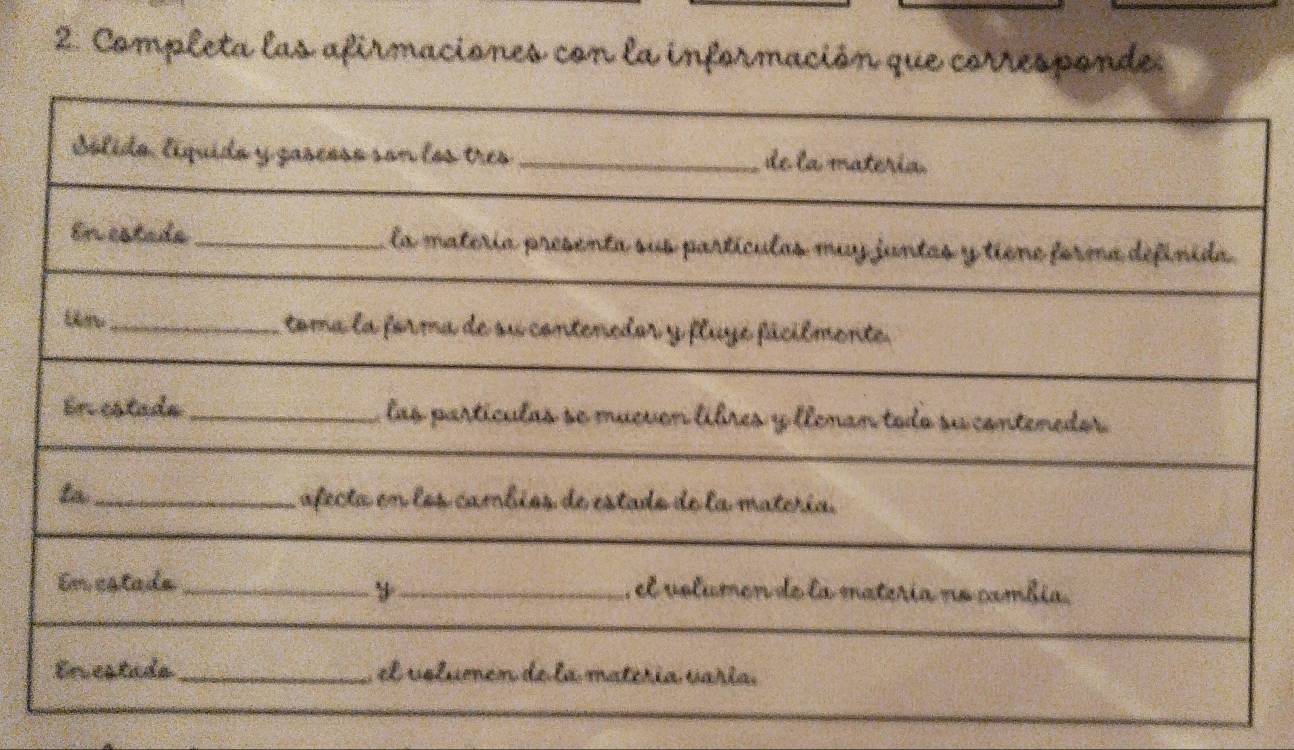 2. Completa las afirmaciones con la información que corresponde:
Sólido, líquido y gaseoso son los tres ____________ de la materia.
En estado ____________ la materia presenta sus partículas muy juntas y tiene forma definida.
Un ____________ toma la forma de su contenedor y fluye fácilmente.
En estado ____________, las partículas se mueven libres y llenan todo su contenedor.
La ____________ afecta en los cambios de estado de la materia.
En estado ____________ y ____________, el volumen de la materia no cambia.
En estado ____________, el volumen de la materia varía.